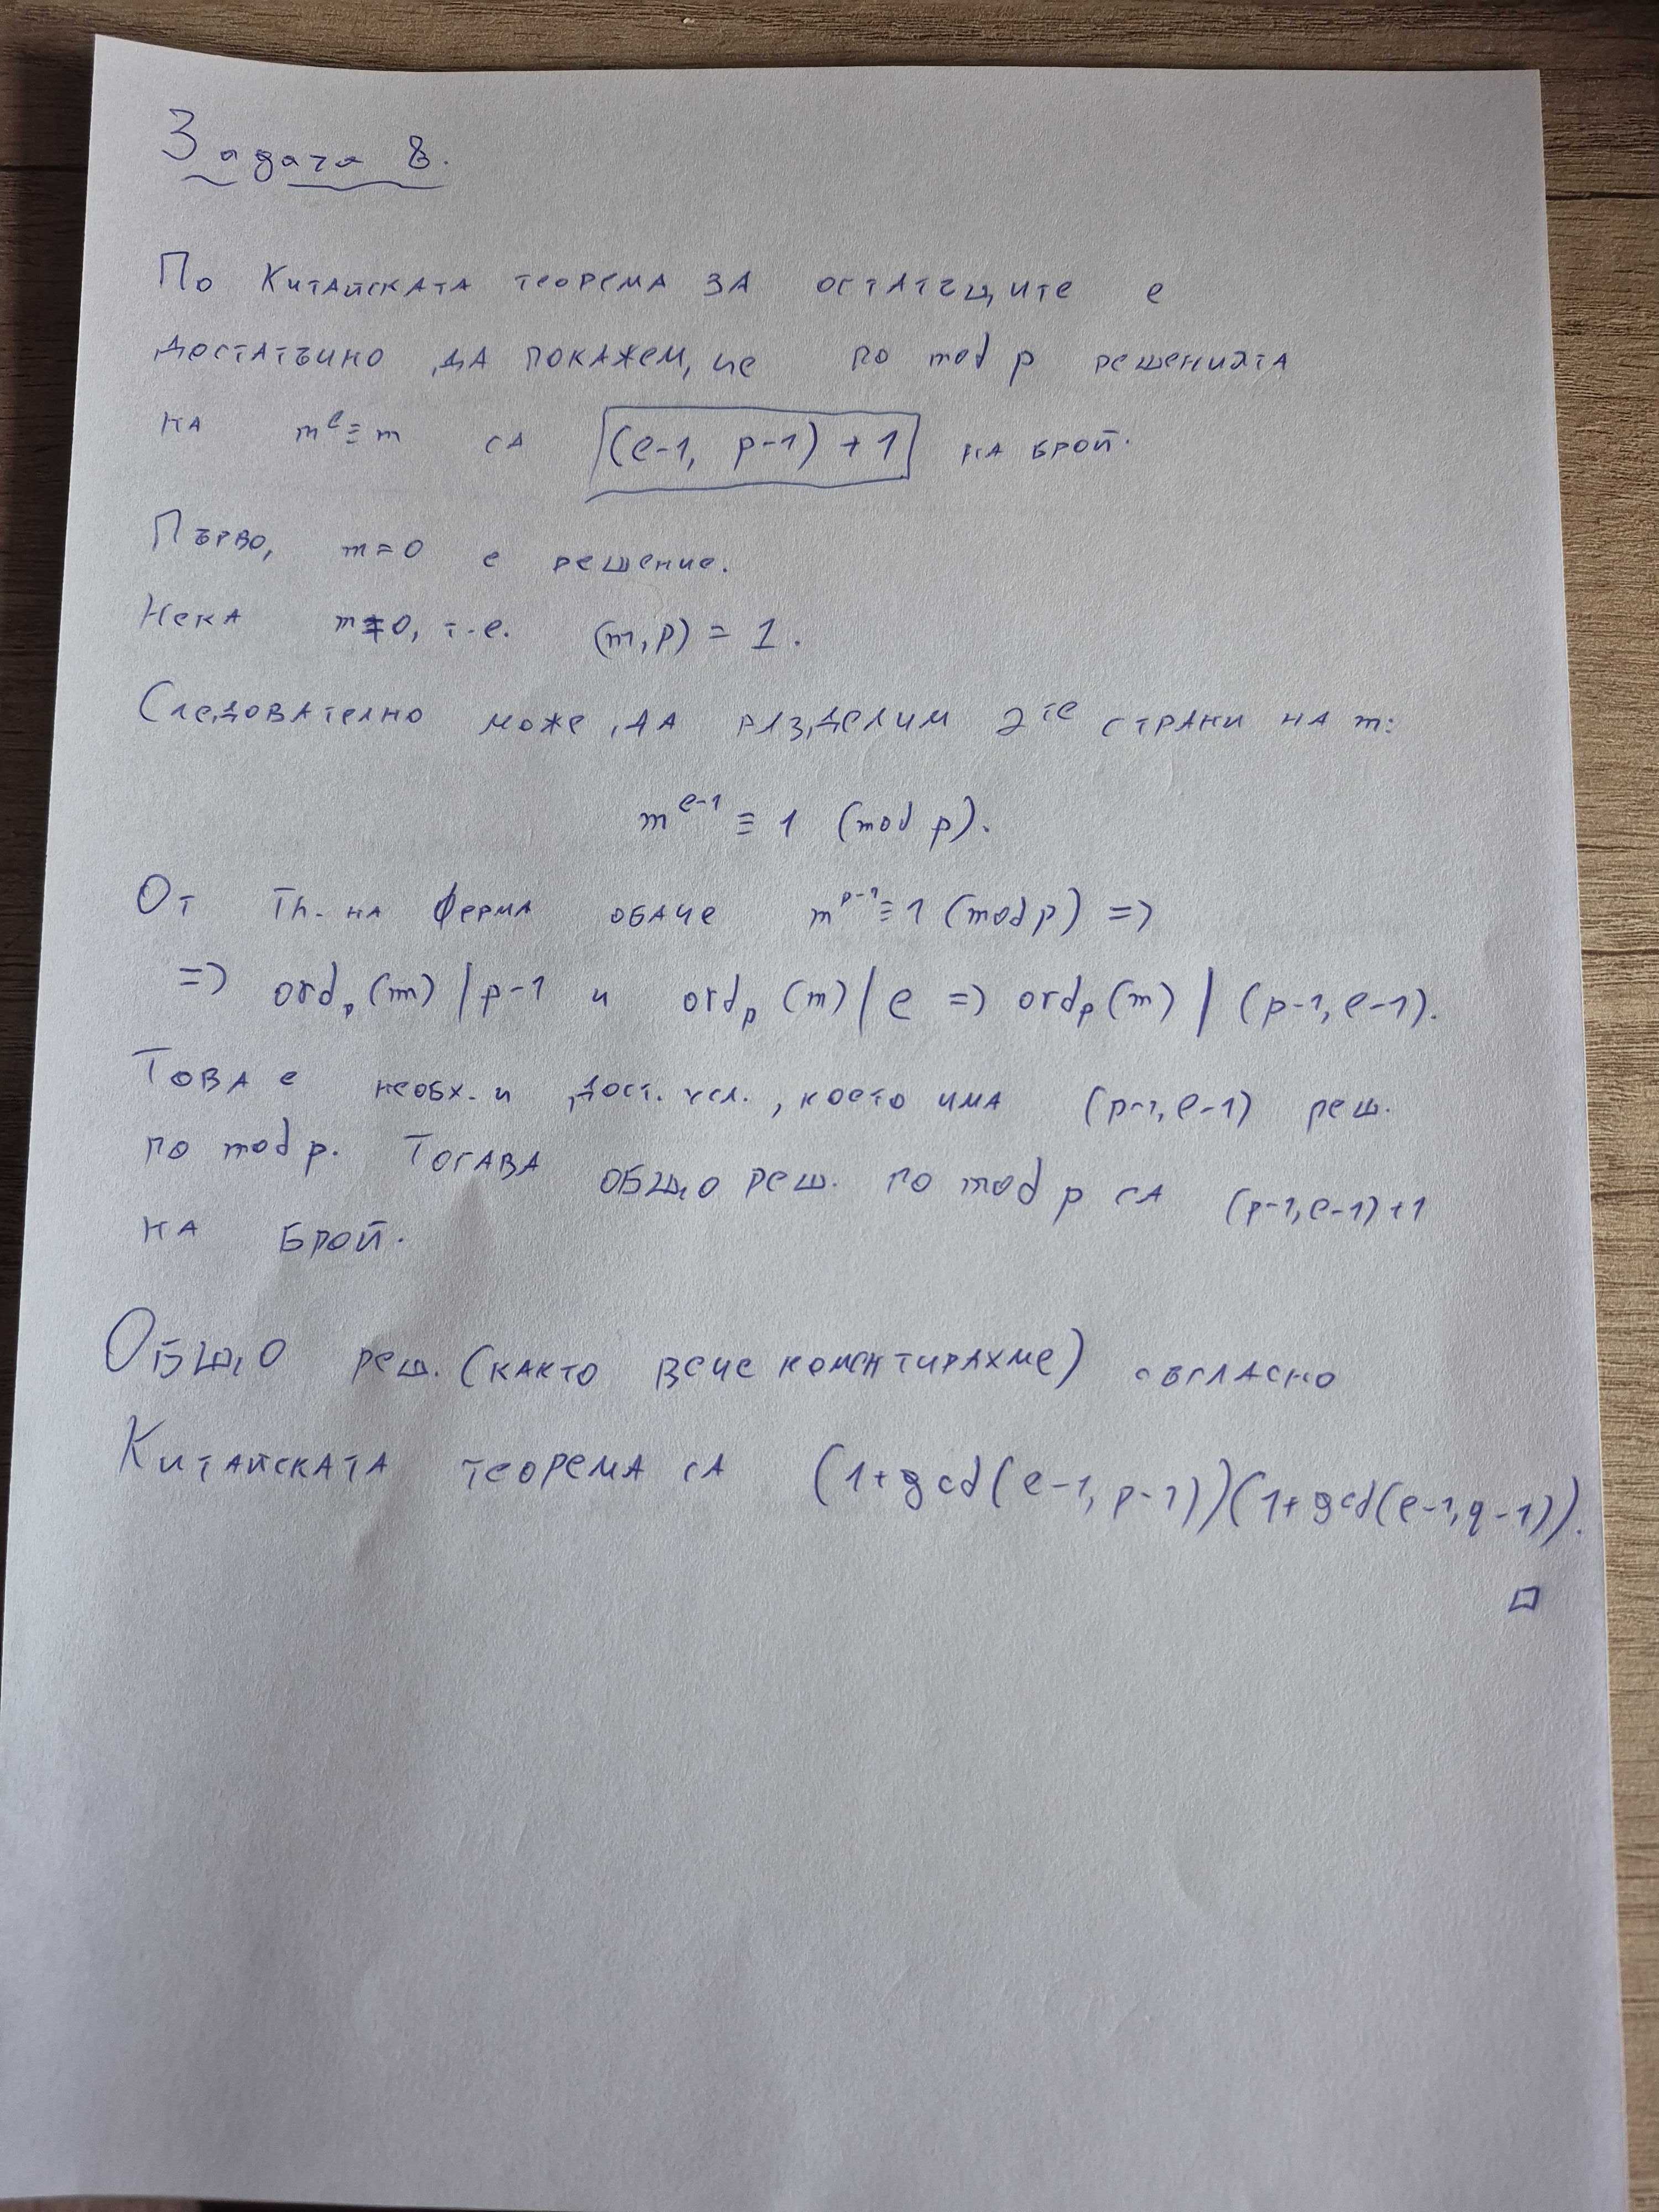 Задача 8.
По Китайската теорема за остатъците е
достатъчно да покажем, че по mod p решенията
на m^e ≡ m са (e-1, p-1) + 1 на брой.
Първо, m=0 е решение.
Нека m≠0, т.е. (m,p) = 1.
Следователно може да разделим 2те страни на m:
m^{e-1} ≡ 1 (mod p).
От Th. на Ферма обаче m^{p-1} ≡ 1 (mod p) =>
=> ord_p(m) | p-1 и ord_p(m) | e => ord_p(m) | (p-1, e-1).
Това е необх. и дост. усл., което има (p-1, e-1) реш.
по mod p. Тогава общо реш. по mod p са (p-1, e-1)+1
на брой.
Общо реш. (както вече коментирахме) съгласно
Китайската теорема са (1+gcd(e-1, p-1))(1+gcd(e-1, q-1)).
□